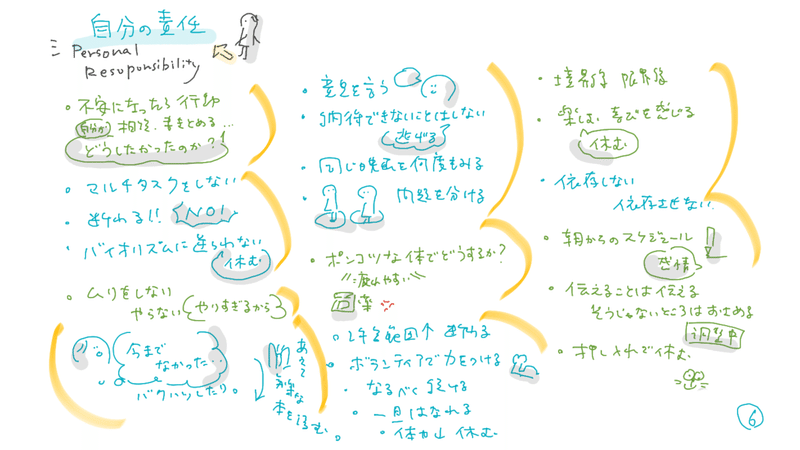 自分の責任
Personal
Resuponsibility
・不安になったら行動
自分が 相談、まとめる…
どうしたかったのか?
・マルチタスクをしない
・断れる!! NO!
・バイオリズムに逆らわない
休む
・ムリをしない
やらない やりすぎるから
今まで
なかった…
バクハツしたり。
あえて
な
本を読む。
・意見を言う
・納得できないことはしない
逃げる
・同じ映画を何度もみる
・問題を分ける
・ポンコツな体でどうするか?
疲れやすい
薬
断る
・ボランティアで力をつける
・なるべく避ける
・一旦はなれる
・休む
・境界線 限界線
・楽しむ 喜びを感じる
休む
・依存しない
依存させない
・朝からのスケジュール
感情
・伝えることは伝える
そうじゃないところはおさめる
調整中
・押し入れで休む
6